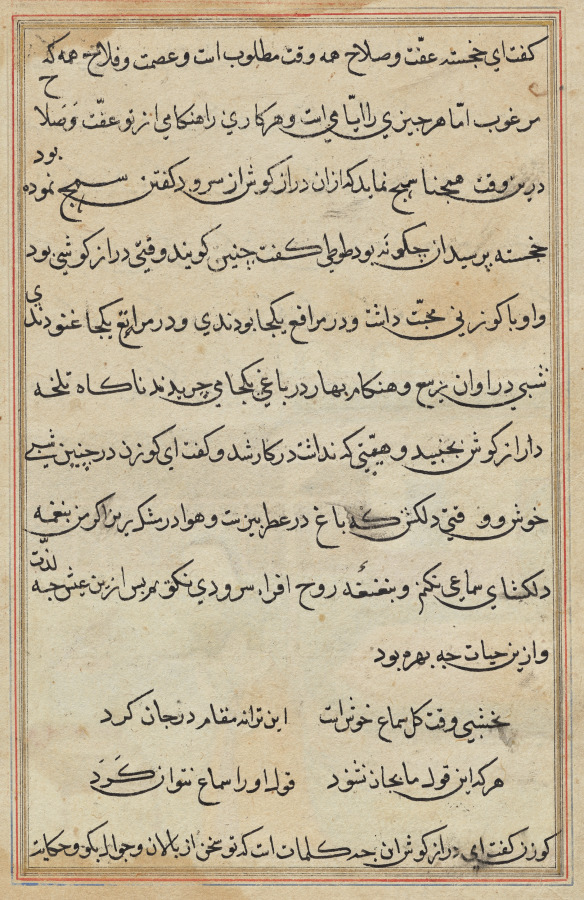 کفت ای خجسته عفّت و صلاح همه وقت مطلوب است و عصمت و فلاح همه که
مرغوب امّا هر چیزی را ایّامی است و هر کاری را هنکامی از تو عفّت و صلاح
درین وقت همچنان سمج نماید که ازان دراز کوش ان سرود کفتن سمج نموده بود
خجسته پرسید ان چکونه بود طوطی کفت چنین کویند وقتی دراز کوشی بود
و او با کوزنی محبّت داشت و در مرافع یکجا بودندی و در مراتع یکجا غنودندی
شبی در اوان ربیع و هنکام بهار در باغی یکجا می چریدند ناکاه تلخه
دراز کوش بجنبید و هیمتی که نداشت در کار شد و کفت ای کوزن در چنین شبی
خوش و وقتی دلکش که باغ در عطر بیزست و هوا در مشک ریز اکر من بنغمه
دلکشای سماعی نکنم و بنغنغهٔ روح افزا سرودی نکویم پس ازین عیش چه لذّت
و ازین حیات چه بهره بود
نخشبی وقت کل سماع خوش است این ترانه مقام در جان کرد
هر که این قول ما بجان نشنود قول او را سماع نتوان کرد
کوزن کفت ای دراز کوش ان چه کلمات است که تو سخن از پالان و جوال بکو و حکایت